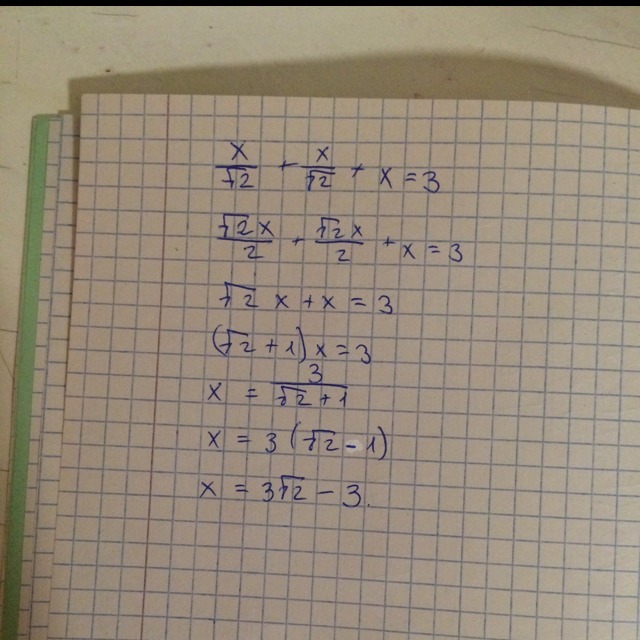 x/√2 + x/√2 + x = 3
√2x/2 + √2x/2 + x = 3
√2 x + x = 3
(√2 + 1)x = 3
x = 3/√2 + 1
x = 3(√2 - 1)
x = 3√2 - 3.